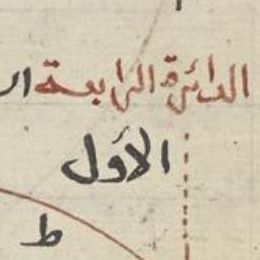 الدائرة الرابعة
الأول
ط